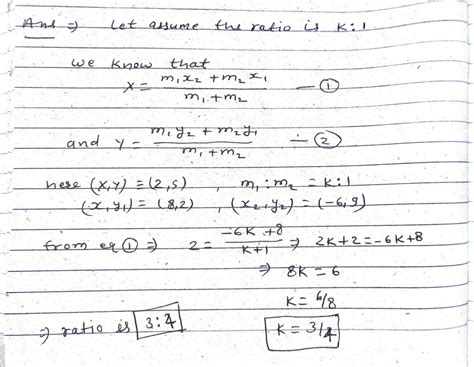 Ans ⇒ Let assume the ratio is K:1
we know that
X = (m₁x₂ + m₂x₁)/(m₁+m₂) — ①
and Y = (m₁y₂ + m₂y₁)/(m₁+m₂) — ②
here (X,Y) = (2,5) , m₁:m₂ = K:1
(x₁y₁) = (8,2) , (x₂,y₂) = (-6,9)
from eq ① ⇒ 2 = (-6K+8)/(K+1) ⇒ 2K+2 = -6K+8
⇒ 8K = 6
K = 6/8
⇒ ratio is 3:4 K = 3/4